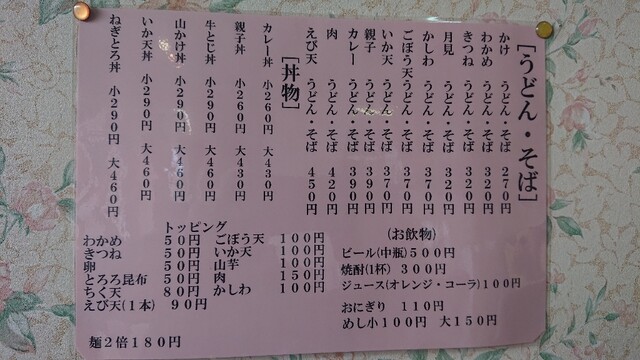 [うどん・そば]
かけ うどん・そば 270円
わかめ うどん・そば 320円
きつね うどん・そば 320円
月見 うどん・そば 320円
かしわ うどん・そば 370円
ごぼう天 うどん・そば 370円
いか天 うどん・そば 370円
親子 うどん・そば 390円
カレー うどん・そば 390円
肉 うどん・そば 420円
えび天 うどん・そば 450円
[丼物]
カレー丼 小260円 大430円
親子丼 小260円 大430円
牛とじ丼 小290円 大460円
山かけ丼 小290円 大460円
いか天丼 小290円 大460円
ねぎとろ丼 小290円 大460円
トッピング
わかめ 50円 ごぼう天 100円
きつね 50円 いか天 100円
卵 50円 山芋 100円
とろろ昆布 50円 肉 150円
ちく天 80円 かしわ 100円
えび天(1本) 90円
麺2倍180円
(お飲物)
ビール(中瓶)500円
焼酎(1杯) 300円
ジュース(オレンジ・コーラ)100円
おにぎり 110円
めし小100円 大150円